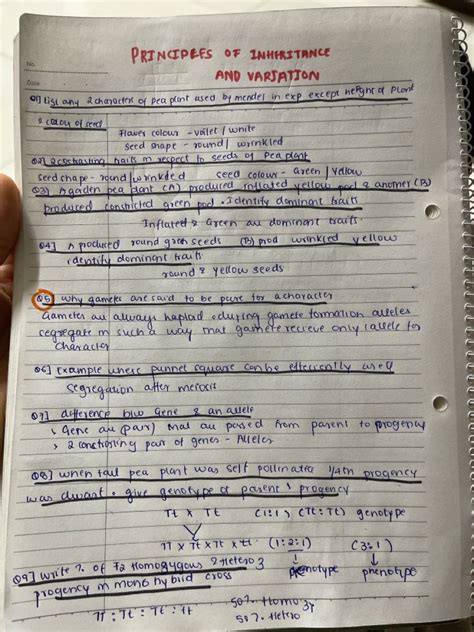 No.
Date
PRINCIPLES OF INHERITANCE
AND VARIATION
Q1] List any 2 characters of pea plant used by mendel in exp except height of plant
2 colour of seed
Flower colour - voilet / white
Seed shape - round / wrinkled
Q2] 2 contrasting traits in respect to seeds of Pea plant
seed shape - round / wrinkled seed colour - Green / Yellow
Q3) A garden pea plant (A) produced inflated yellow pod & another (B)
produced constricted green pod. Identify dominant traits
Inflated & Green are dominant traits.
Q4] A produced round green seeds (B) prod wrinkled yellow
identify dominant traits
round & yellow seeds
Q5] Why gametes are said to be pure for a character
Gametes are always haploid . during gamete formation alleles
segregate in such a way that gamete recieve only 1 allele for
character
Q6] example where punnet square can be effeciently used
Segregation after meiosis
Q7] difference b/w Gene & an allele
Gene are (pair) that are passed from parent to progency
> 2 constrasting pair of genes - Alleles
Q8] when tall pea plant was self pollinated 1/4th progency
was dwarf . give genotype of parent & progency
Tt x Tt (1:1), (Tt:Tt) genotype
TT x Tt x Tt x tt (1:2:1) (3:1)
genotype phenotype
Q9] Write % of F2 Homozygous & Hetero
progency in mono hybrid cross
TT : Tt : Tt : tt 50% Homo
50% Hetero